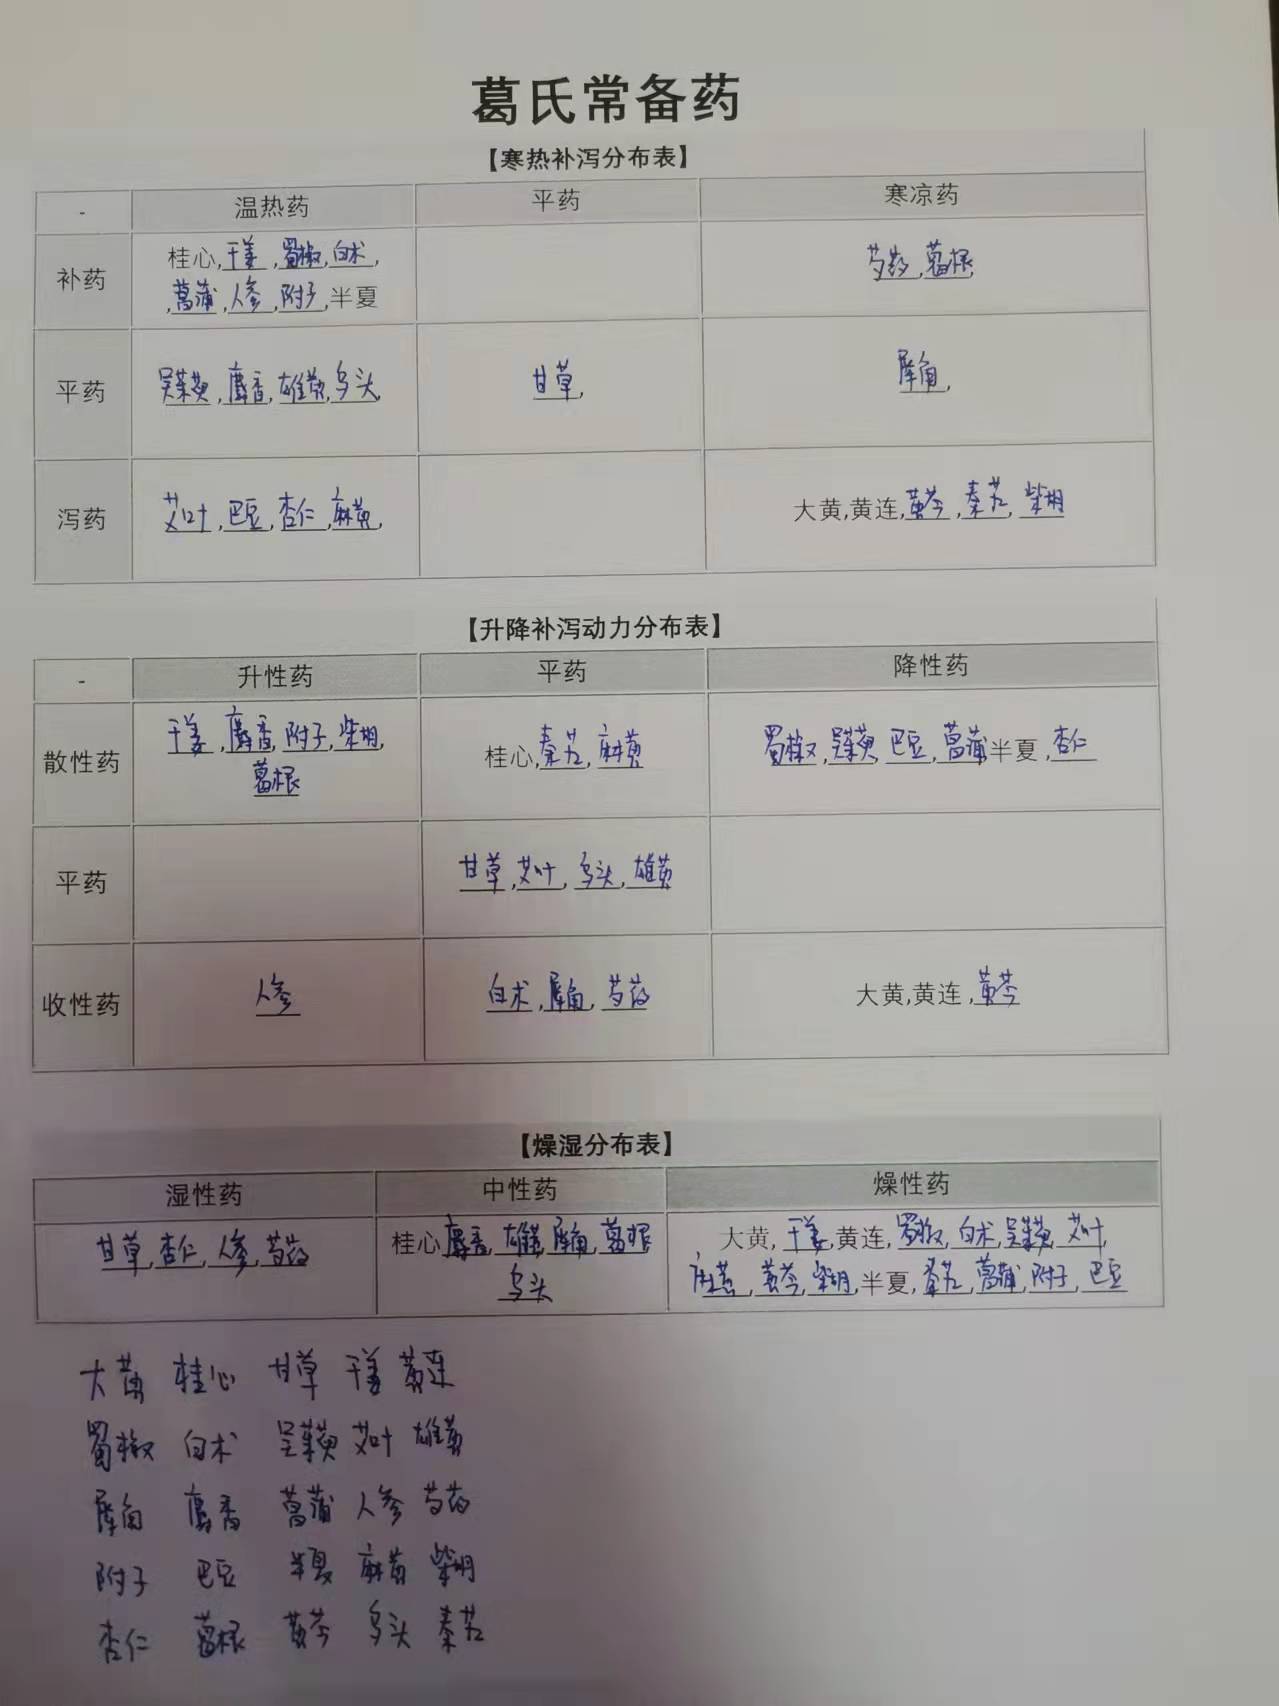 葛氏常备药
【寒热补泻分布表】
- 温热药 平药 寒凉药
补药 桂心,干姜,蜀椒,白术, 芍药,葛根
,菖蒲,人参,附子,半夏
平药 吴茱萸,麝香,雄黄,乌头, 甘草, 犀角,
泻药 艾叶,巴豆,杏仁,麻黄, 大黄,黄连,黄芩,秦艽,柴胡
【升降补泻动力分布表】
- 升性药 平药 降性药
散性药 干姜,麝香,附子,柴胡, 桂心,秦艽,麻黄 蜀椒,吴茱萸,巴豆,菖蒲半夏,杏仁
葛根
平药 甘草,艾叶,乌头,雄黄
收性药 人参 白术,犀角,芍药 大黄,黄连,黄芩
【燥湿分布表】
湿性药 中性药 燥性药
甘草,杏仁,人参,芍药 桂心麝香,雄黄,犀角,葛根 大黄,干姜,黄连,蜀椒,白术,吴茱萸,艾叶,
乌头 麻黄,黄芩,柴胡,半夏,秦艽,菖蒲,附子,巴豆
大黄 桂心 甘草 干姜 黄连
蜀椒 白术 吴茱萸 艾叶 雄黄
犀角 麝香 菖蒲 人参 芍药
附子 巴豆 半夏 麻黄 柴胡
杏仁 葛根 黄芩 乌头 秦艽